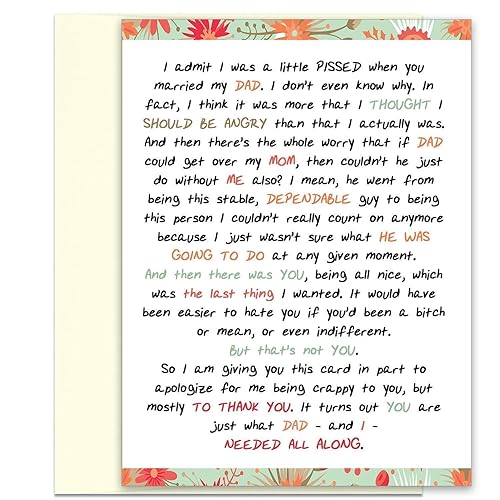 I admit I was a little PISSED when you
married my DAD. I don't even know why. In
fact, I think it was more that I THOUGHT I
SHOULD BE ANGRY than that I actually was.
And then there's the whole worry that if DAD
could get over my MOM, then couldn't he just
do without ME also? I mean, he went from
being this stable, DEPENDABLE guy to being
this person I couldn't really count on anymore
because I just wasn't sure what HE WAS
GOING TO DO at any given moment.
And then there was YOU, being all nice, which
was the last thing I wanted. It would have
been easier to hate you if you'd been a bitch
or mean, or even indifferent.
But that's not YOU.
So I am giving you this card in part to
apologize for me being crappy to you, but
mostly TO THANK YOU. It turns out YOU are
just what DAD - and I -
NEEDED ALL ALONG.